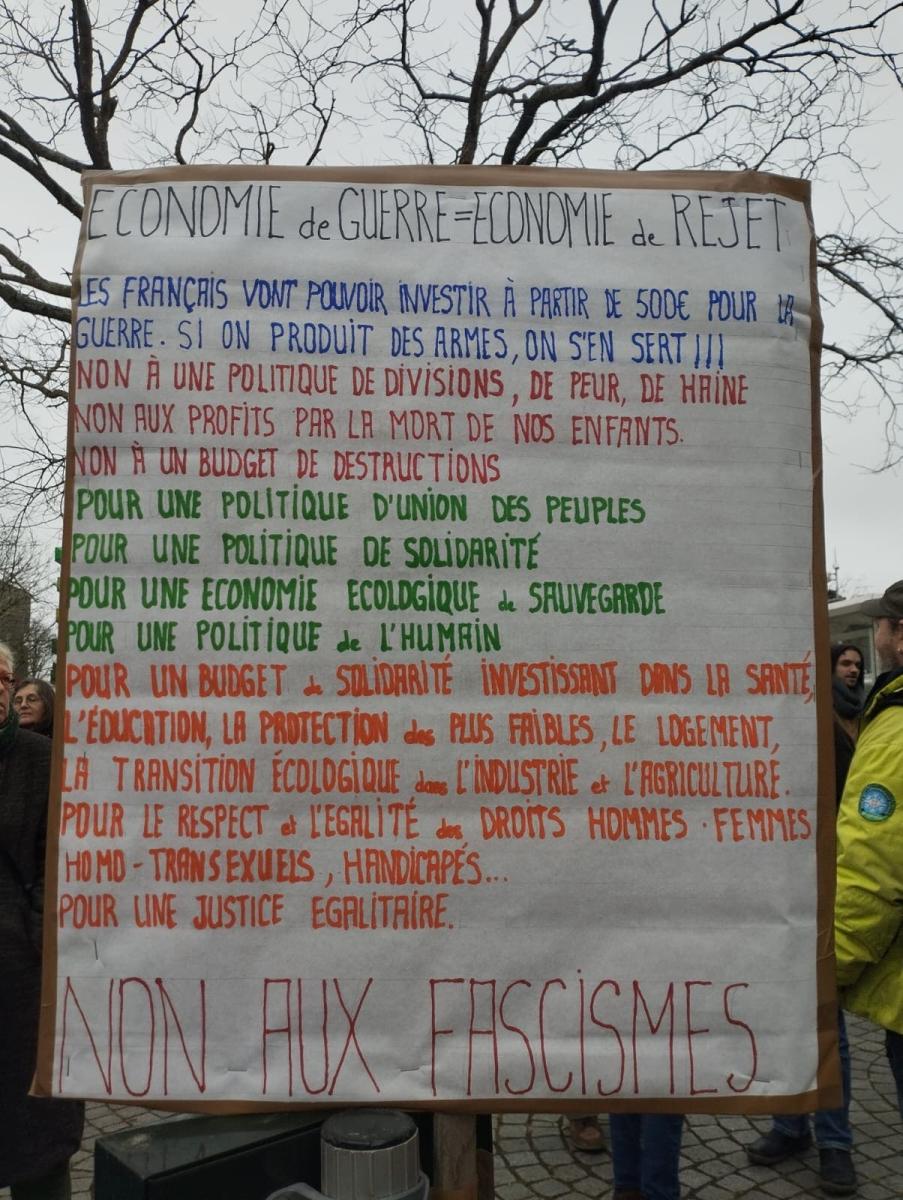 ECONOMIE de GUERRE = ECONOMIE de REJET
LES FRANÇAIS VONT POUVOIR INVESTIR À PARTIR DE 500€ POUR LA
GUERRE. SI ON PRODUIT DES ARMES, ON S'EN SERT !!!
NON À UNE POLITIQUE DE DIVISIONS, DE PEUR, DE HAINE
NON AUX PROFITS PAR LA MORT DE NOS ENFANTS.
NON À UN BUDGET DE DESTRUCTIONS
POUR UNE POLITIQUE D'UNION DES PEUPLES
POUR UNE POLITIQUE DE SOLIDARITÉ
POUR UNE ECONOMIE ECOLOGIQUE de SAUVEGARDE
POUR UNE POLITIQUE de L'HUMAIN
POUR UN BUDGET de SOLIDARITÉ INVESTISSANT DANS LA SANTÉ,
L'ÉDUCATION, LA PROTECTION des PLUS FAIBLES, LE LOGEMENT,
LA TRANSITION ÉCOLOGIQUE dans L'INDUSTRIE et L'AGRICULTURE.
POUR LE RESPECT et L'EGALITÉ des DROITS HOMMES - FEMMES
HOMO - TRANSEXUELS, HANDICAPÉS...
POUR UNE JUSTICE EGALITAIRE.
NON AUX FASCISMES